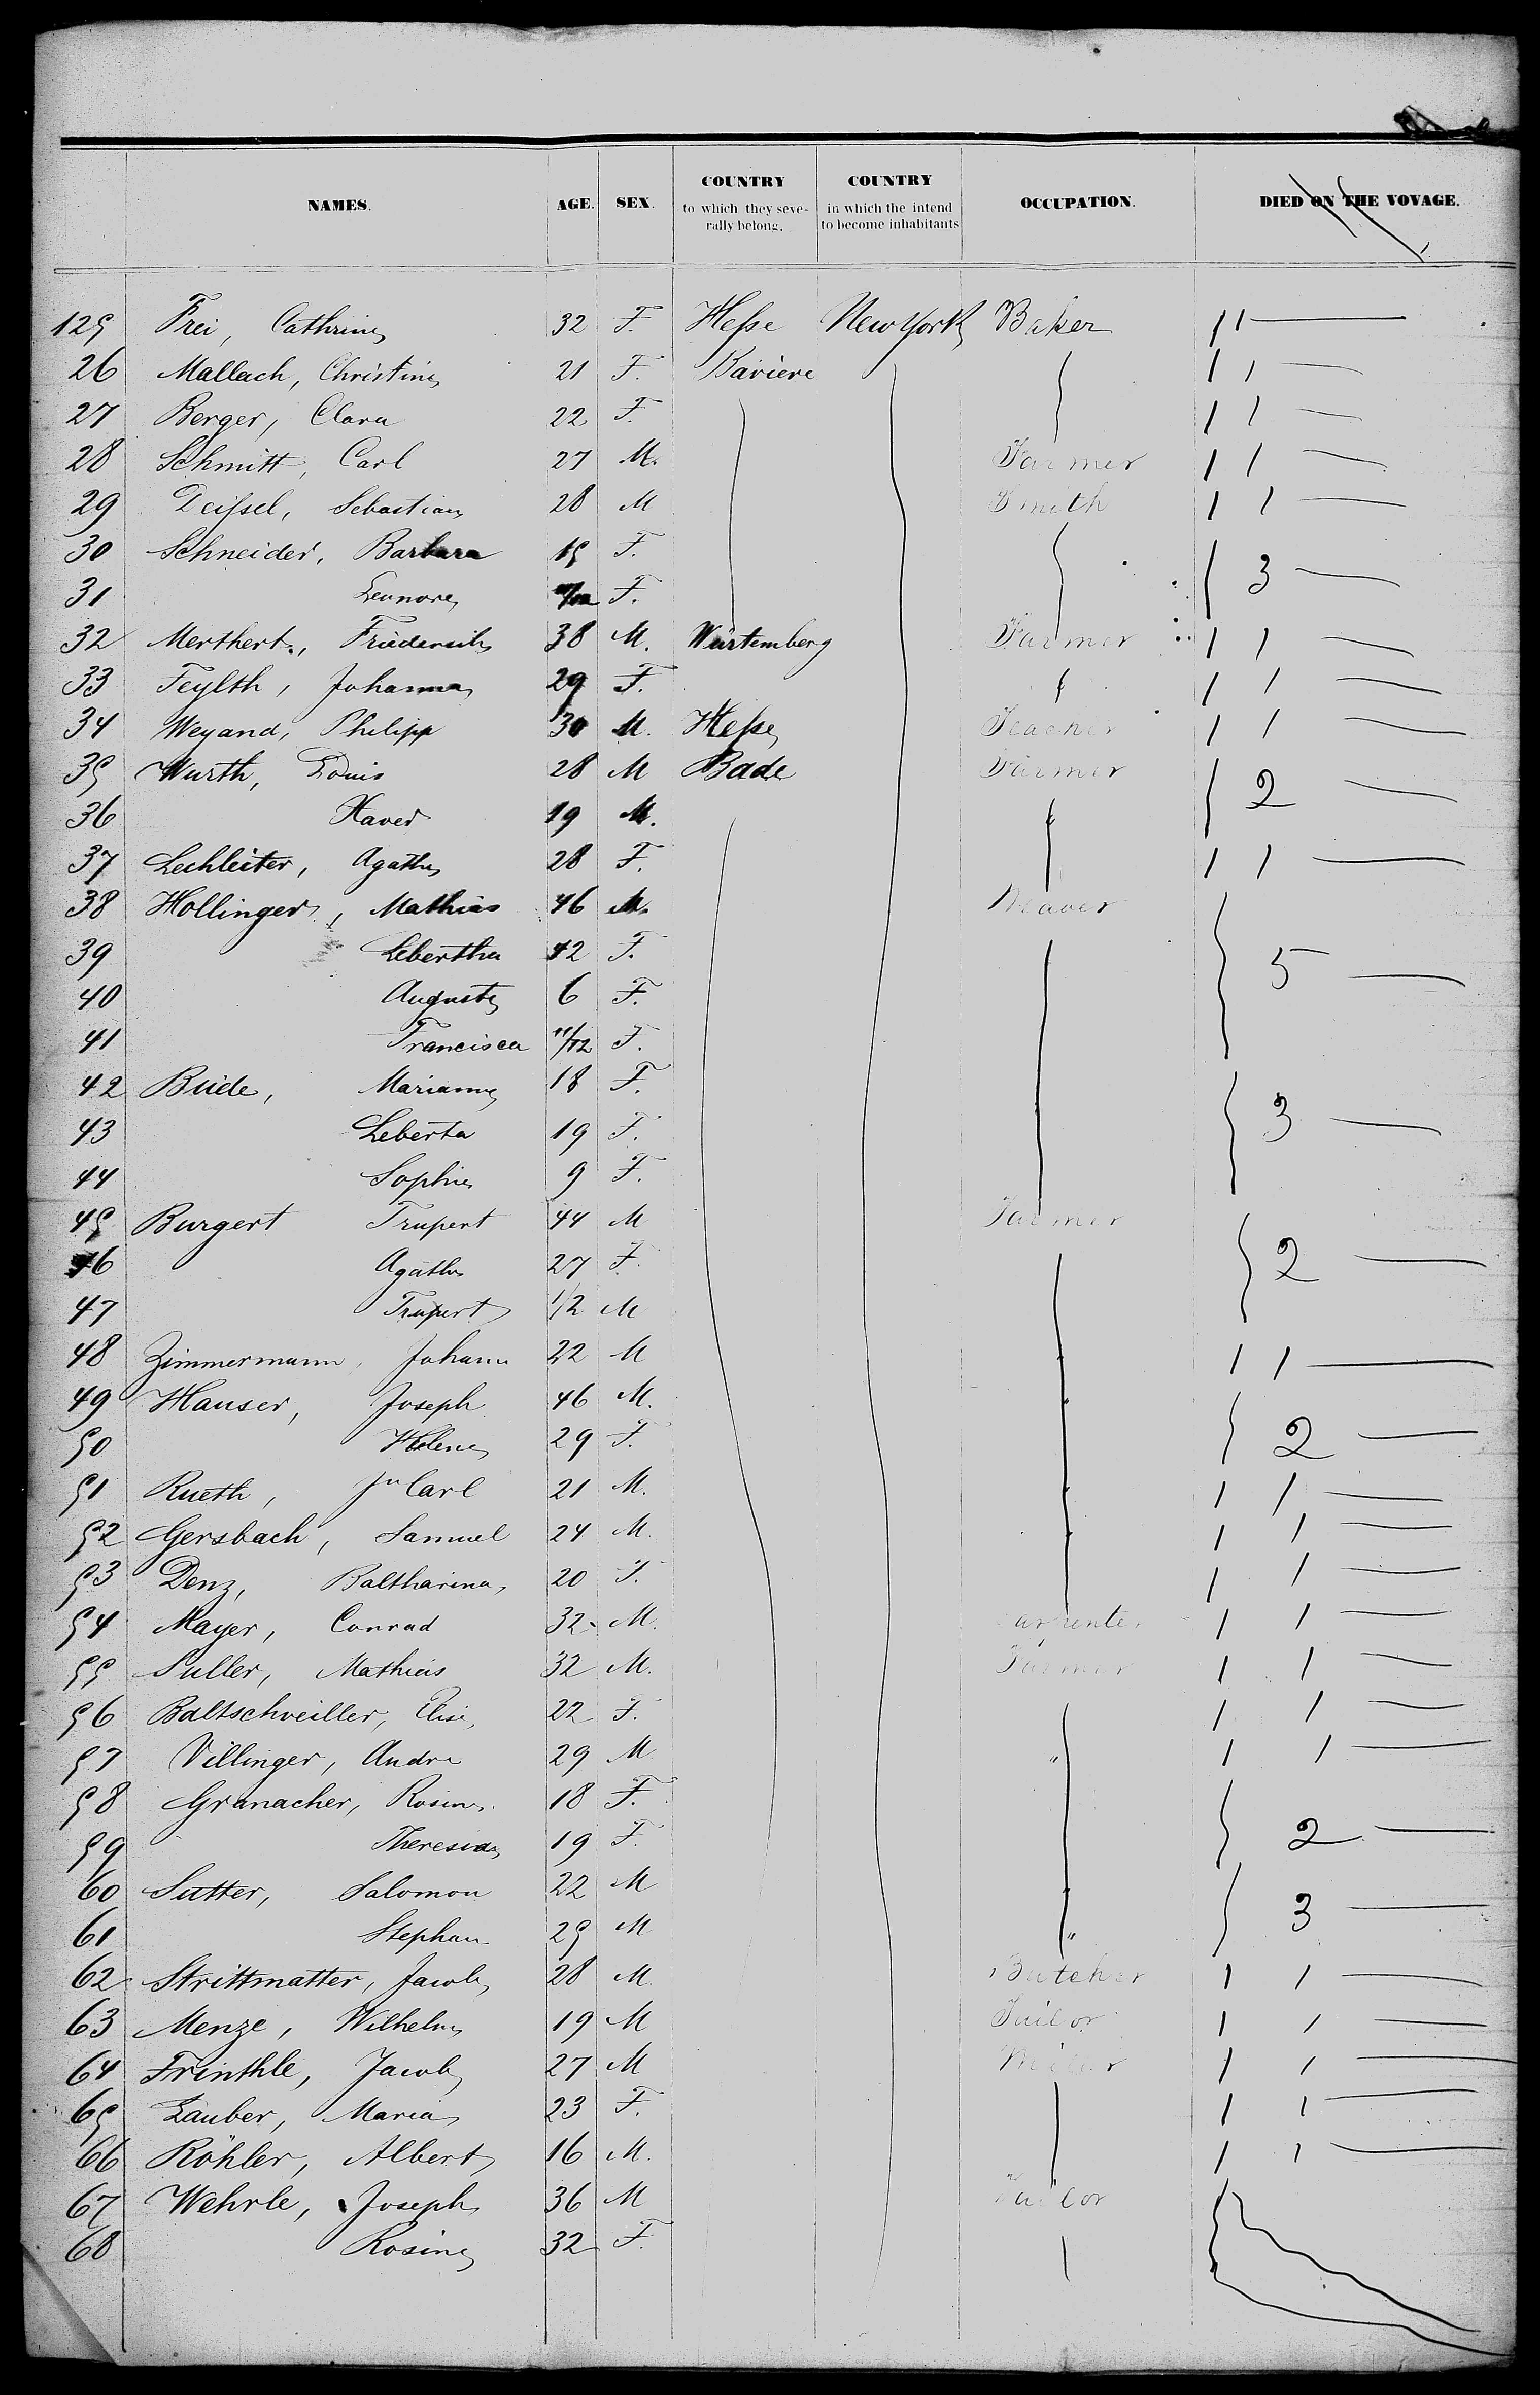 NAMES. AGE. SEX. COUNTRY to which they severally belong. COUNTRY in which the intend to become inhabitants OCCUPATION. DIED ON THE VOYAGE.
125 Frei, Cathrine 32 F. Hesse New York Baker 1 1
26 Mallach, Christine 21 F. Baviere 1 1
27 Berger, Clara 22 F. 1 1
28 Schmitt, Carl 27 M. Farmer 1 1
29 Deissel, Sebastian 28 M Smith 1 1
30 Schneider, Barbara 15 F. 3
31 Leonore F.
32 Merthert, Friederich 38 M. Würtemberg Farmer 1 1
33 Feylth, Johanna 29 F. 1 1
34 Weyand, Philipp 30 M. Hesse Teacher 1 1
35 Wurth, Louis 28 M Bade Farmer 2
36 Xaver 19 M.
37 Lechleiter, Agathe 28 F. 1 1
38 Hollinger, Mathias 46 M. Weaver 5
39 Lebertha 42 F.
40 Auguste 6 F.
41 Francisca 11/12 F.
42 Büde, Marianne 18 F. 3
43 Leberta 19 F.
44 Sophie 9 F.
45 Burgert Trupert 44 M Farmer 2
46 Agathe 27 F.
47 Trupert 1/2 M
48 Zimmermann, Johann 22 M 1 1
49 Hauser, Joseph 46 M. 2
50 Helene 29 F.
51 Rueth, Jn Carl 21 M. 1 1
52 Gersbach, Samuel 24 M. 1 1
53 Denz, Baltharina, 20 F. 1 1
54 Mayer, Conrad 32 M. Carpenter 1 1
55 Suller, Mathias 32 M. Farmer 1 1
56 Baltschveiller, Elise, 22 F. 1 1
57 Villinger, Andre 29 M " 1 1
58 Granacher, Rosine 18 F. 2
59 Theresia 19 F.
60 Sutter, Salomon 22 M 3
61 Stephan 25 M "
62 Strittmatter, Jacob 28 M. Butcher 1 1
63 Menze, Wilhelm 19 M Tailor 1 1
64 Frinthle, Jacob 27 M Miller 1 1
65 Lauber, Maria 23 F. 1 1
66 Röhler, Albert 16 M. 1 1
67 Wehrle, Joseph 36 M Tailor
68 Rosine 32 F.